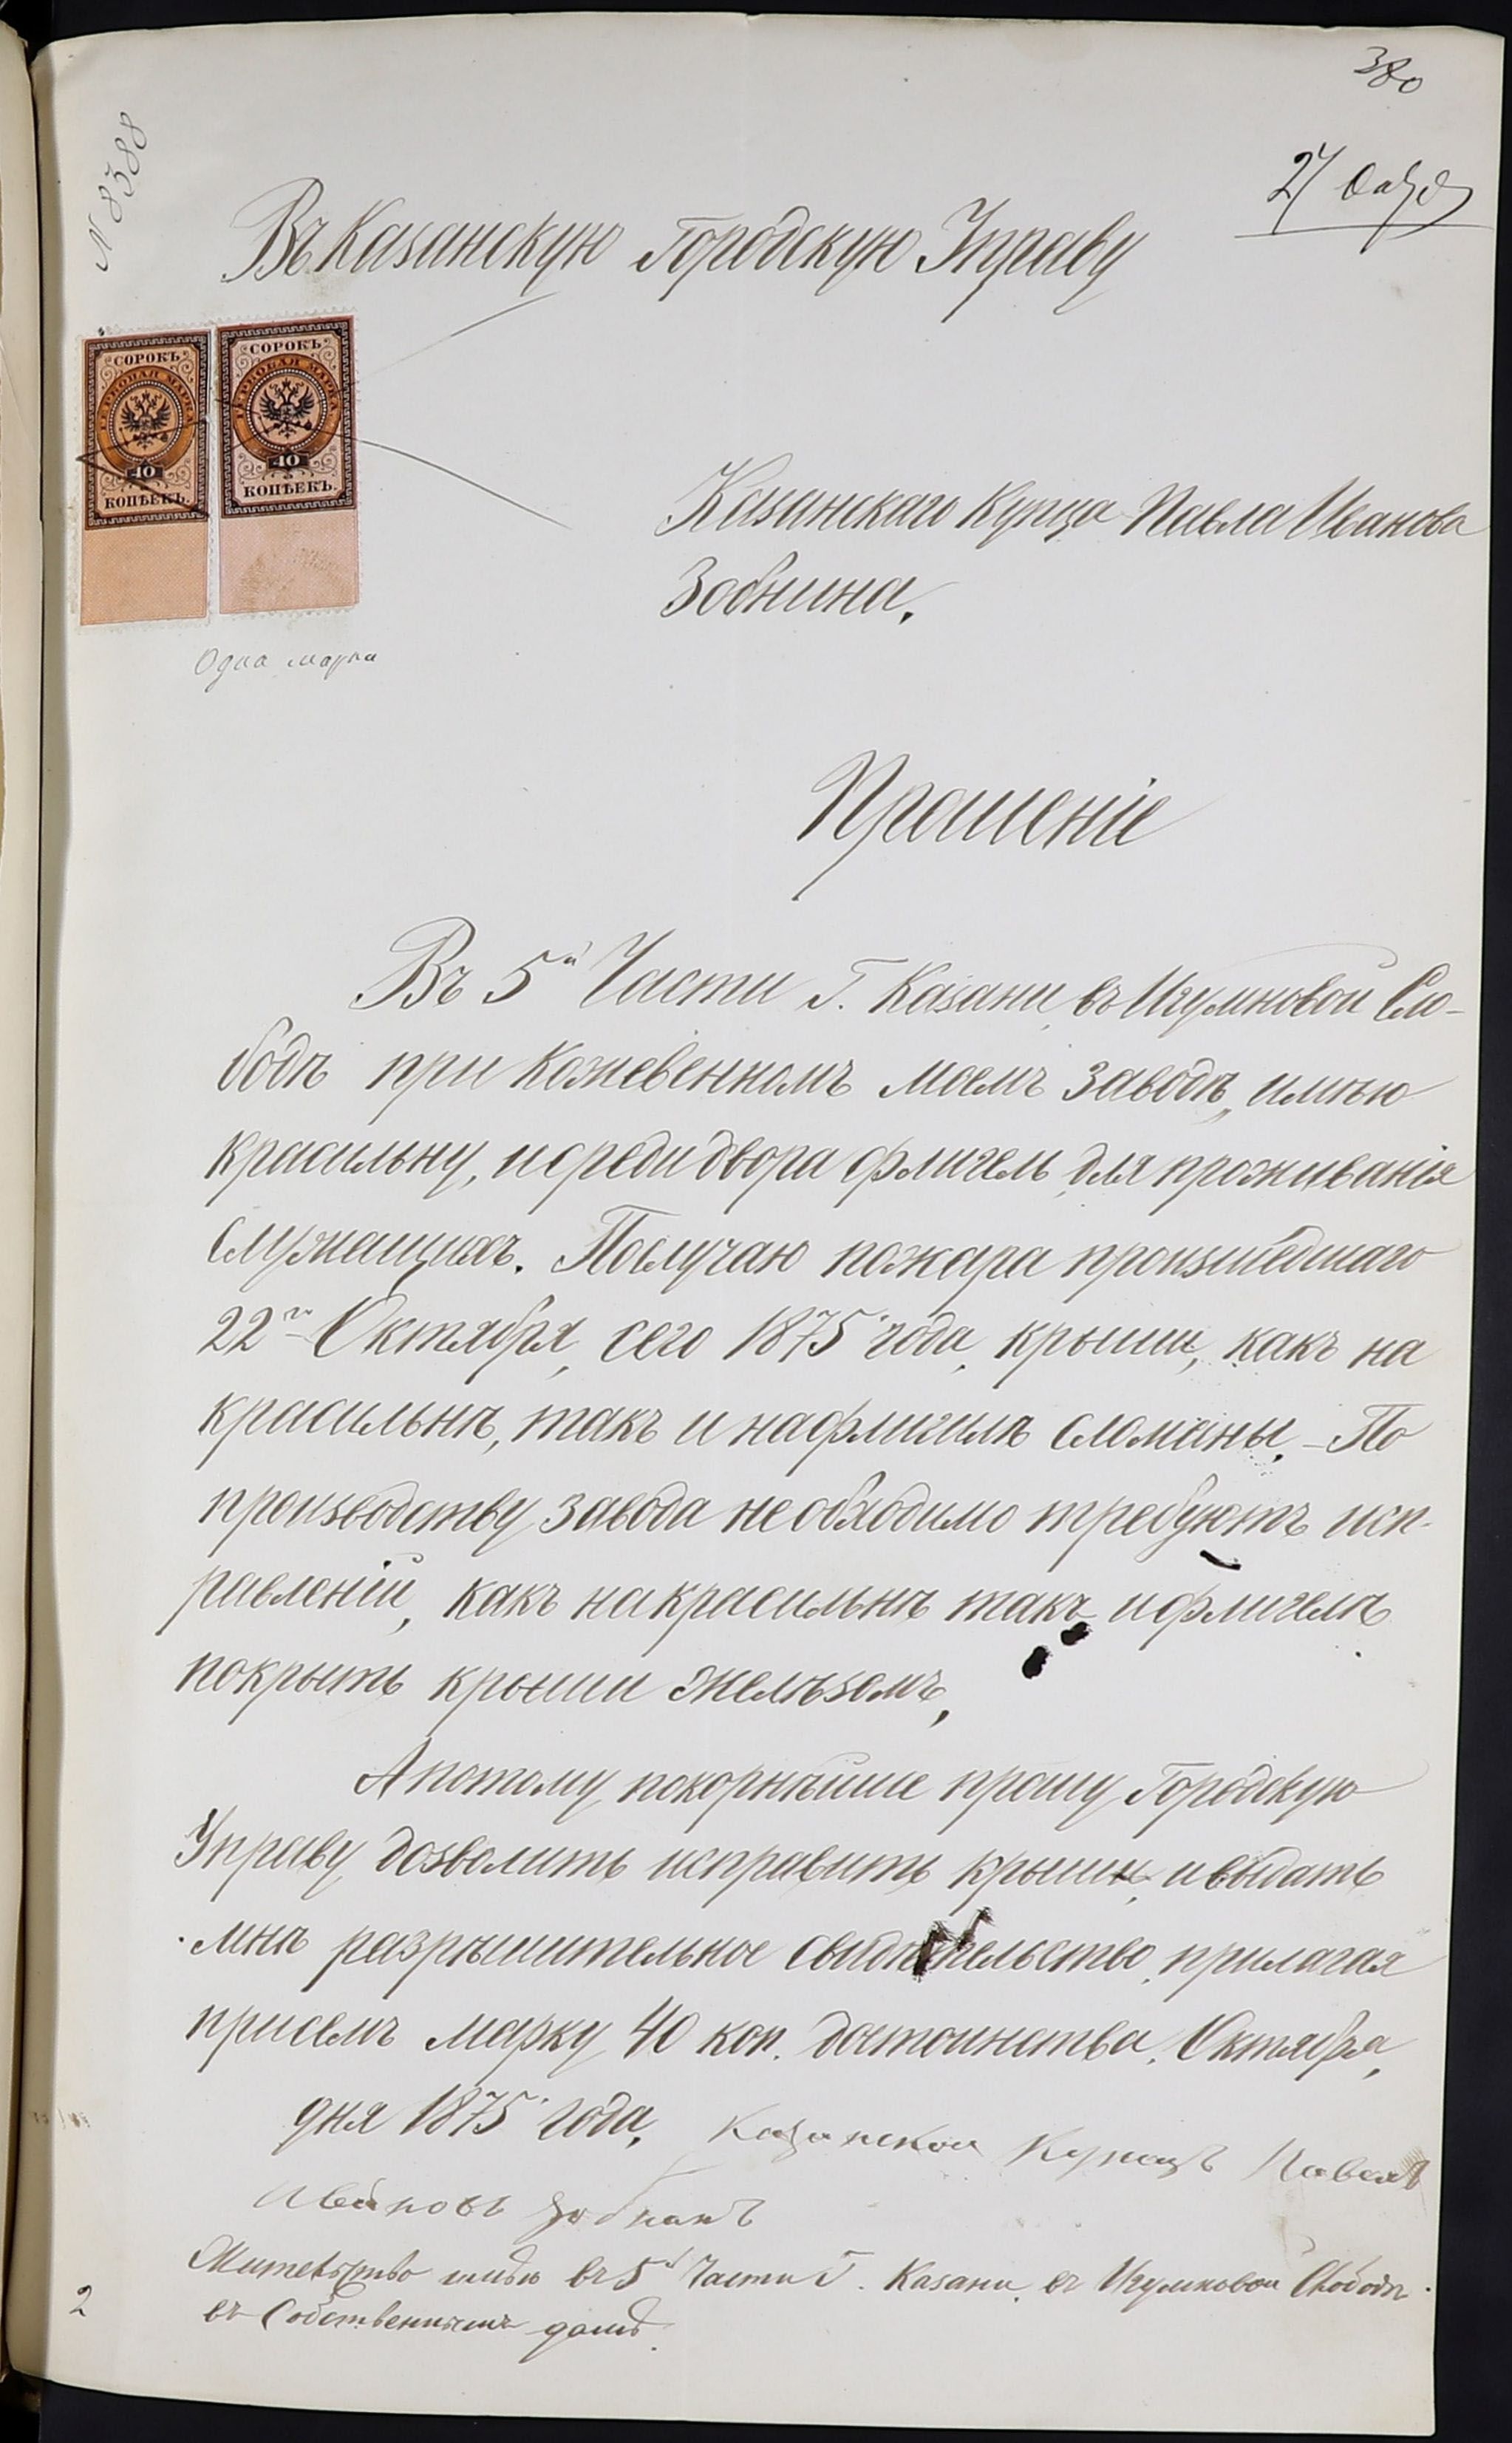 380
N 8388
27 Окт
Въ Казанскую Городскую Управу
СОРОКЪ
ГЕРБОВАЯ МАРКА
40
КОПѢЕКЪ.
СОРОКЪ
ГЕРБОВАЯ МАРКА
40
КОПѢЕКЪ.
Одна марка
Казанскаго Купца Павла Иванова
Зобнина.
Прошеніе
Въ 5й Части Г. Казани, въ Игумновой Сло-
бодѣ при Кожевенномъ моемъ заводѣ, имѣю
красильну, и среди двора флигель для проживанія
Служащихъ. Послучаю пожара произшедшаго
22го Октября, сего 1875 года, крыши, какъ на
красильнѣ, такъ и нафлигилѣ сломаны. - По
производству завода необходимо требуютъ исп-
равленій, какъ на красильнѣ такъ и флигелѣ
покрыть крыши желѣзомъ,
А потому, покорнѣйше прошу Городскую
Управу дозволить исправить крыши, и выдать
мнѣ разрѣшительное свидѣтельство, прилагая
присемъ марку 40 коп. достоинства. Октября,
дня 1875 года. Казанской Купецъ Павелъ
Ивановъ Зобнинъ
Жительство имѣю въ 5й Части Г. Казани, въ Игумновой Слободѣ.
въ Собственнымъ домѣ.
2